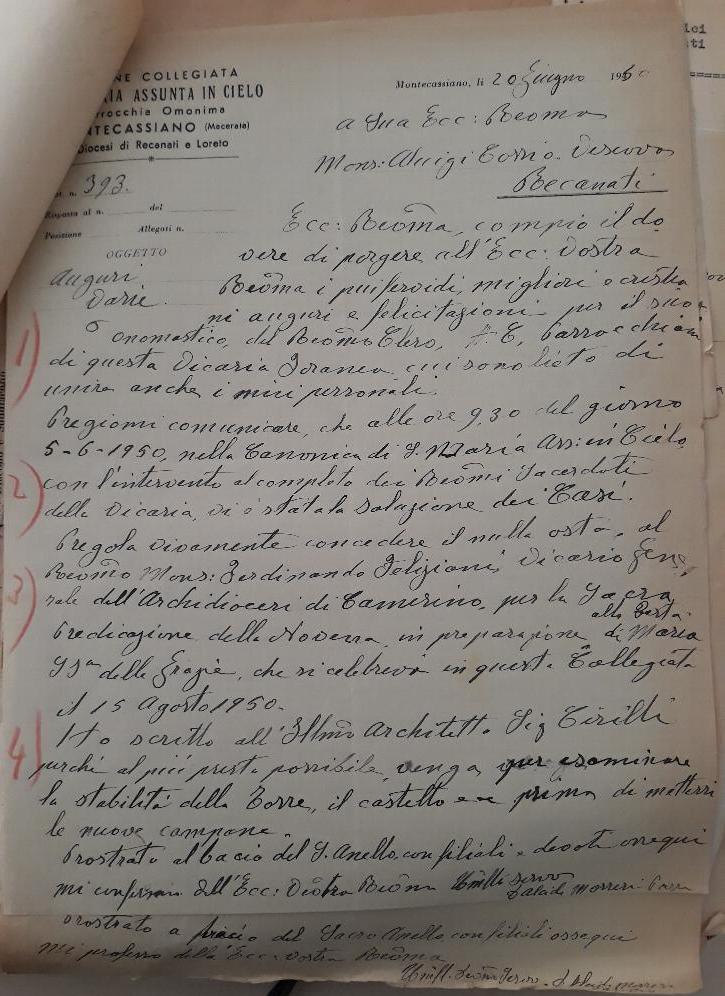 NE COLLEGIATA
RIA ASSUNTA IN CIELO
rrocchia Omonima
NTECASSIANO (Macerata)
Diocesi di Recanati e Loreto
Montecassiano, li 20 Giugno 1950
A Sua Ecc: Reoma
Mons: Aluigi Cossio. Vescovo
Recanati
n. 393.
Risposta al n. del
Posizione Allegati n.
OGGETTO
Auguri
Varie
Ecc: Reoma, compio il do
vere di porgere all'Ecc: Vostra
Reoma i più fervidi, migliori e cristia
ni auguri e felicitazioni per il suo
1) onomastico, del Reomo Clero, A. C. Parrocchiani
di questa Vicaria Foranea cui sono lieto di
unire anche i miei personali.
Pregiomi comunicare, che alle ore 9,30 del giorno
5-6-1950, nella Canonica di S. Maria Ass: in Cielo,
2) con l'intervento al completo dei Reomi Sacerdoti
della Vicaria, vi è stata la soluzione dei Casi.
Pregola vivamente concedere il nulla osta, al
Reomo Mons: Ferdinando Feliziani, Vicario Gene
3) rale dell'Archidiocesi di Camerino, per la Sacra
Predicazione della Novena, in preparazione alla Festa di Maria
SSma delle Grazie, che si celebrerà in questa Collegiata
il 15 Agosto 1950.
4) Ho scritto all'Illmo Architetto Sig Cirilli
perché al più presto possibile, venga per esaminare
la stabilità della Torre, il castello prima di metterci
le nuove campane.
Prostrato al bacio del S. Anello, con filiali e devoti ossequi
mi confermo dell'Ecc: Vostra Reoma Umill: servo
prostrato a bacio del Sacro Anello con filiali ossequi
mi professo della Ecc. Vostra Reoma
Umill. Servo